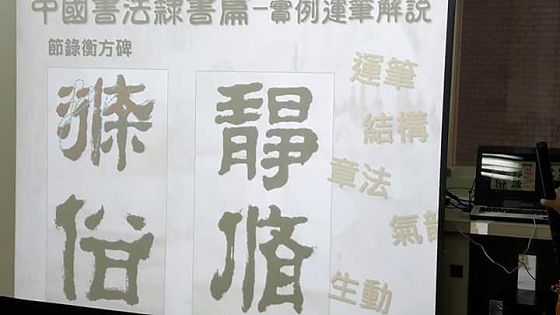 中國書法隸書篇–實例運筆解說
節錄衡方碑
靜
俗
運筆
結構
章法
氣韻
生動